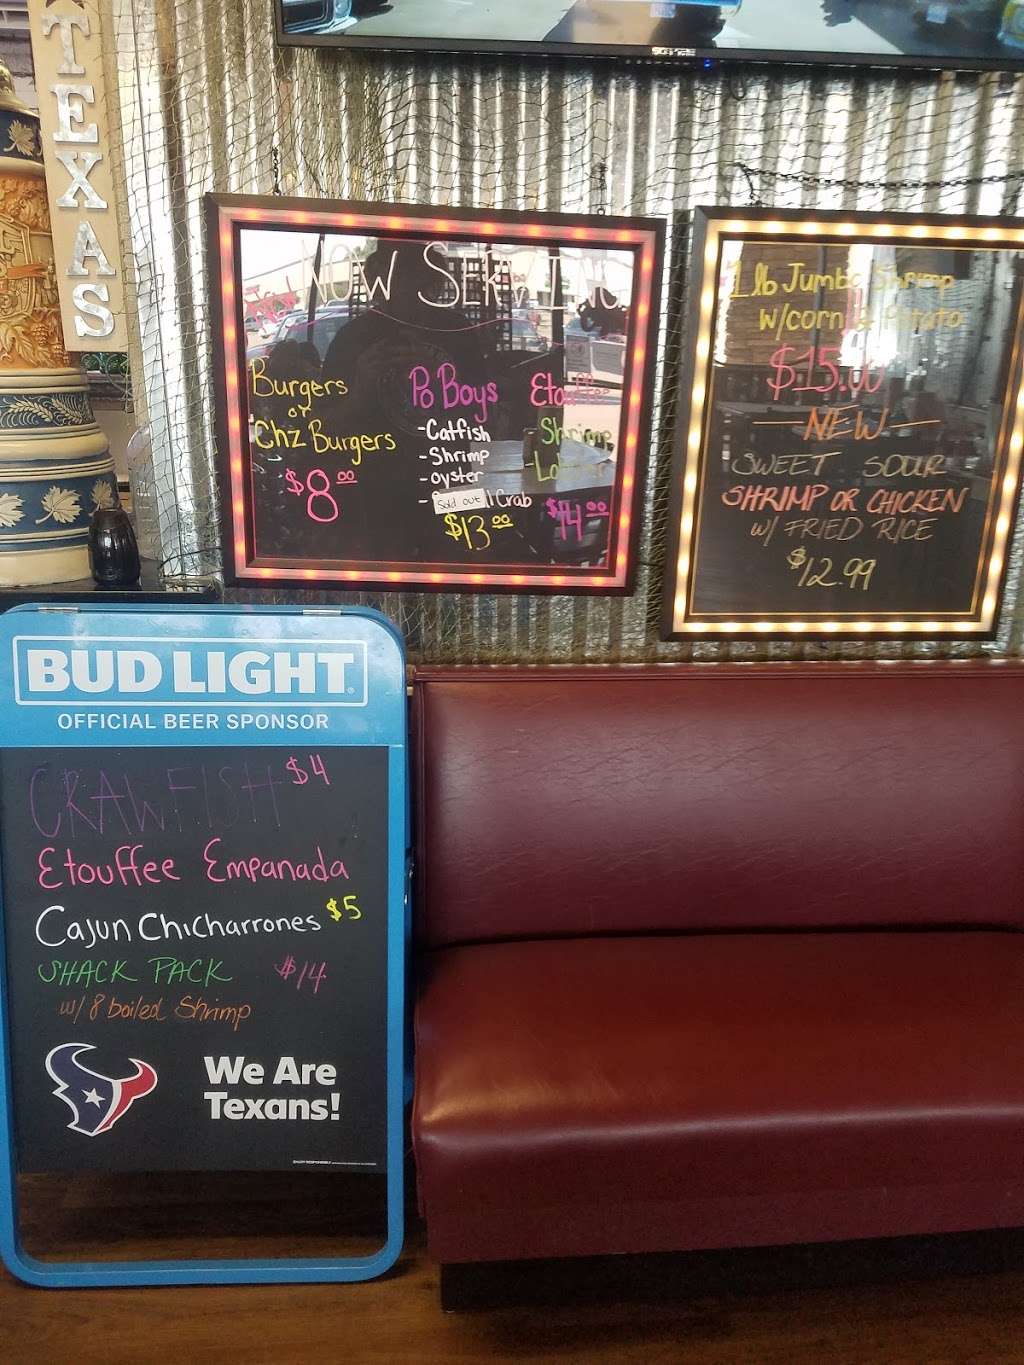 TEXAS
NOW SERVING
Burgers
or
Chz Burgers
$8.00
Po Boys
-Catfish
-Shrimp
-oyster
Sold out Crab
$13.00
Etouffee
Shrimp
$14.00
1 lb Jumbo Shrimp
w/corn & Potato
$15.00
NEW
SWEET SOUR
SHRIMP OR CHICKEN
w/ FRIED RICE
$12.99
BUD LIGHT
OFFICIAL BEER SPONSOR
CRAWFISH $4
Etouffee Empanada
Cajun Chicharrones $5
SHACK PACK $14
w/ 8 boiled Shrimp
We Are
Texans!